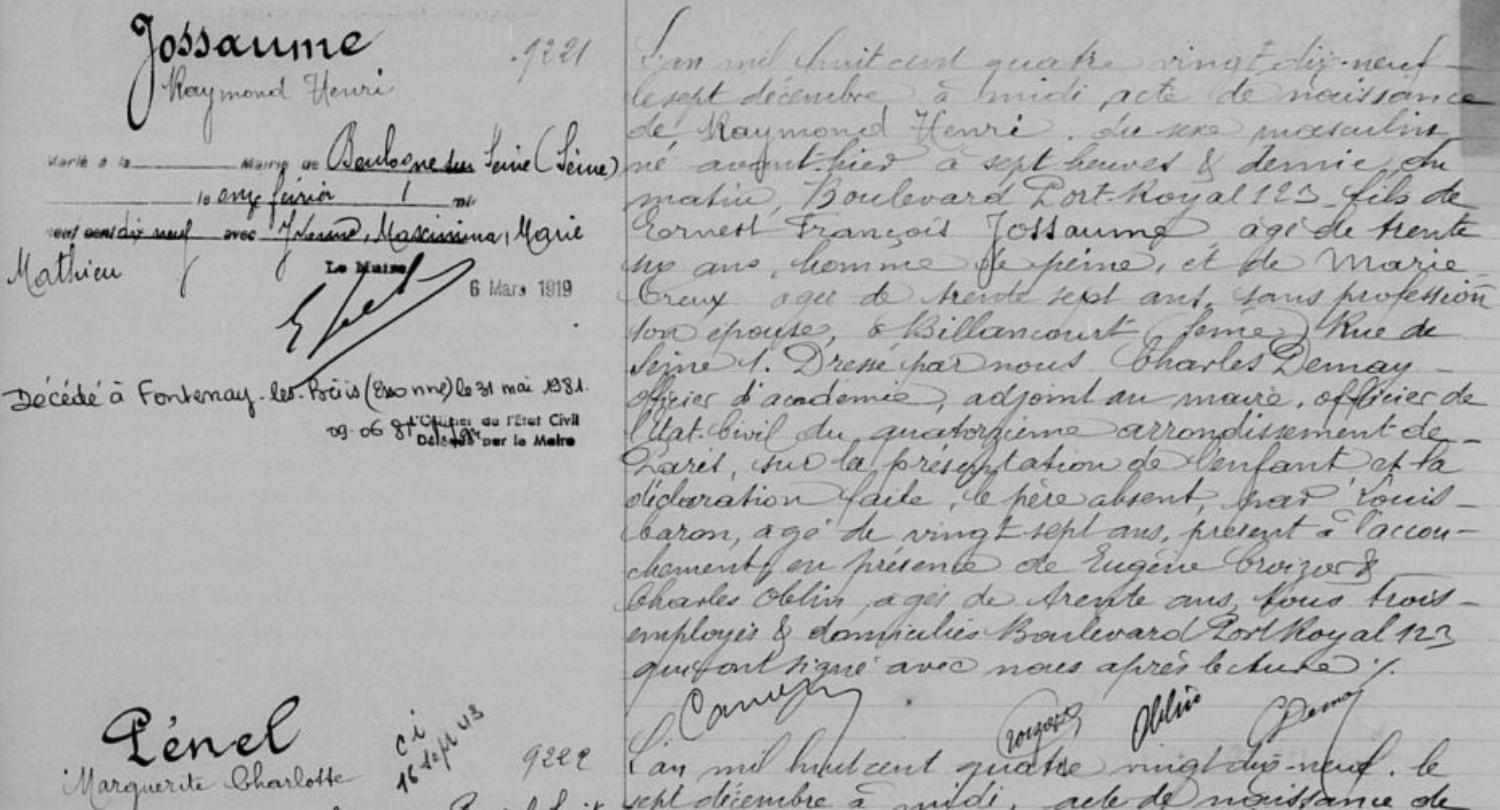 Jossaume
Raymond Henri
9221
Marié à la Mairie de Boulogne sur Seine (Seine)
le onze février 1 mil
neuf cent dix neuf avec Maximina, Marie
Mathieu
Le Maire
6 Mars 1919
Décédé à Fontenay-les-Briis (Essonne) le 31 mai 1981.
09-06-81 l'Officier de l'Etat Civil
Délégué par le Maire
L'an mil huit cent quatre vingt dix-neuf
le sept décembre à midi acte de naissance
de Raymond Henri. du sexe masculin
né avant hier à sept heures & demie du
matin, Boulevard Port-Royal 123 fils de
Ernest François Jossaume, âgé de trente
six ans, homme de peine, et de Marie
Creux agée de trente sept ans, sans profession
son épouse, à Billancourt (Seine) Rue de
Seine 1. Dressé par nous Charles Demay
officier d'académie, adjoint au maire, officier de
l'Etat-Civil du quatorzième arrondissement de
Paris, sur la présentation de l'enfant et la
déclaration faite, le père absent, par Louis
Caron, agé de vingt sept ans, présent à l'accou-
chement, en présence de Eugène Croizer &
Charles Oblin, agés de trente ans, tous trois
employés & domiciliés Boulevard Port Royal 123
qui ont signé avec nous après lecture ./.
Oblin CDemay
Pénel
Marguerite Charlotte
ci
16 sept 43
9222
L'an mil huit cent quatre vingt dix-neuf. le
sept décembre à midi, acte de naissance de